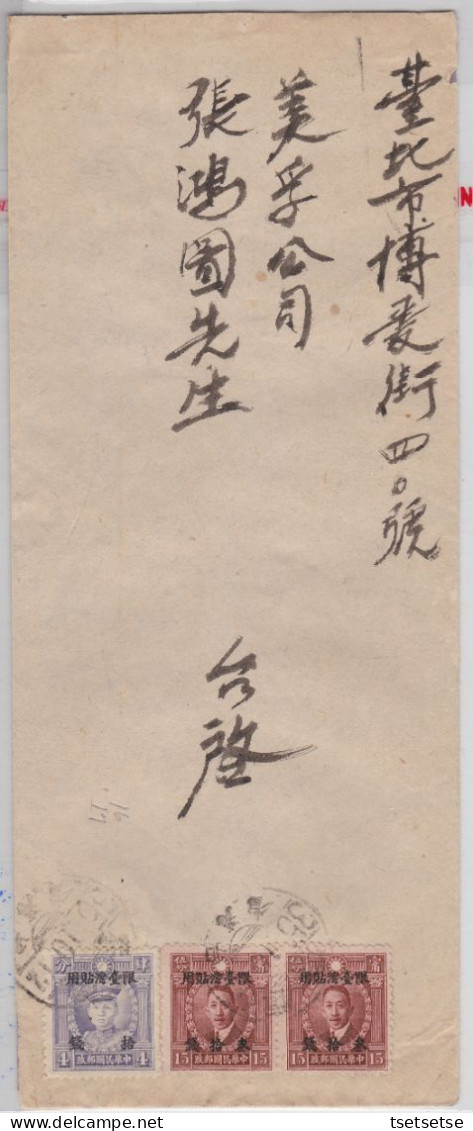 臺北市博愛街四〇號
美孚公司
張鴻圖先生
台啓
限臺灣貼用
拾錢
4 4
中華民國郵政
限臺灣貼用
叁拾錢
15 15
中華民國郵政
限臺灣貼用
叁拾錢
15 15
中華民國郵政
N
tsetsetse